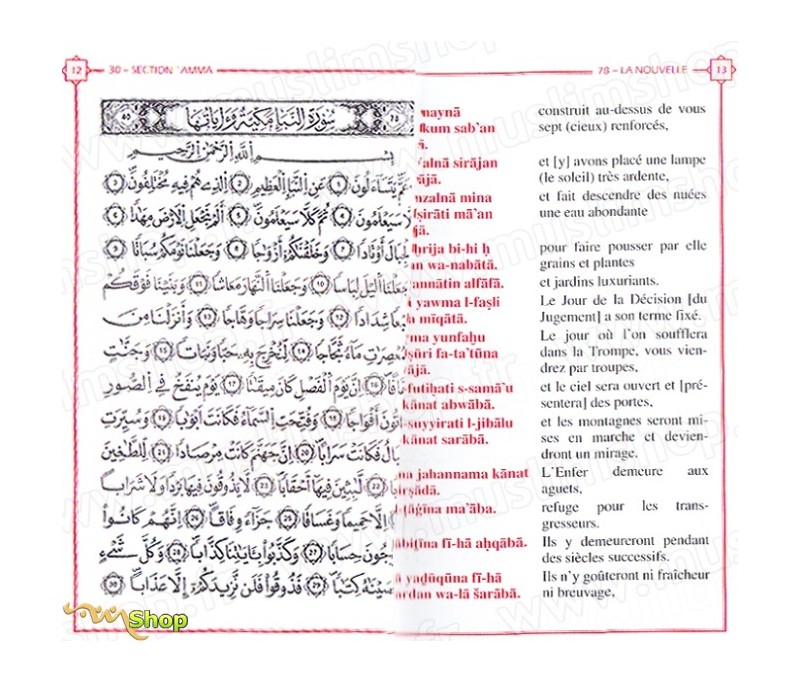 12 30 – SECTION ʿAMMA
سورة النبأ مكية وآياتها
بِسْمِ اللَّهِ الرَّحْمَٰنِ الرَّحِيمِ
عَمَّ يَتَسَاءَلُونَ ١ عَنِ النَّبَإِ الْعَظِيمِ ٢ الَّذِي هُمْ فِيهِ مُخْتَلِفُونَ ٣
سَيَعْلَمُونَ ٤ ثُمَّ كَلَّا سَيَعْلَمُونَ ٥ أَلَمْ نَجْعَلِ الْأَرْضَ مِهَادًا ٦
أَوْتَادًا ٧ وَخَلَقْنَاكُمْ أَزْوَاجًا ٨ وَجَعَلْنَا نَوْمَكُمْ سُبَاتًا ٩
اللَّيْلَ لِبَاسًا ١٠ وَجَعَلْنَا النَّهَارَ مَعَاشًا ١١ وَبَنَيْنَا فَوْقَكُمْ
شِدَادًا ١٢ وَجَعَلْنَا سِرَاجًا وَهَّاجًا ١٣ وَأَنْزَلْنَا مِنَ
مَاءً ثَجَّاجًا ١٤ لِنُخْرِجَ بِهِ حَبًّا وَنَبَاتًا ١٥ وَجَنَّاتٍ
١٦ إِنَّ يَوْمَ الْفَصْلِ كَانَ مِيقَاتًا ١٧ يَوْمَ يُنْفَخُ فِي الصُّورِ
أَفْوَاجًا ١٨ وَفُتِحَتِ السَّمَاءُ فَكَانَتْ أَبْوَابًا ١٩ وَسُيِّرَتِ
فَكَانَتْ سَرَابًا ٢٠ إِنَّ جَهَنَّمَ كَانَتْ مِرْصَادًا ٢١ لِلطَّاغِينَ
٢٢ لَابِثِينَ فِيهَا أَحْقَابًا ٢٣ لَا يَذُوقُونَ فِيهَا بَرْدًا وَلَا شَرَابًا
٢٤ إِلَّا حَمِيمًا وَغَسَّاقًا ٢٥ جَزَاءً وِفَاقًا ٢٦ إِنَّهُمْ كَانُوا
حِسَابًا ٢٧ وَكَذَّبُوا بِآيَاتِنَا كِذَّابًا ٢٨ وَكُلَّ شَيْءٍ
كِتَابًا ٢٩ فَذُوقُوا فَلَنْ نَزِيدَكُمْ إِلَّا عَذَابًا ٣٠
78 – LA NOUVELLE 13
maynā
kum sabʿan
alnā sirājan
nzalnā mina
ṣirāti māʾan
rija bi-hi ḥ
an wa-nabātā.
annātin alfāfā.
yawma l-faṣli
mīqātā.
ma yunfaḫu
ṣūri fa-taʾtūna
futiḥati s-samāʾu
kānat abwābā.
suyyirati l-jibālu
kānat sarābā.
na jahannama kānat
irṣādā.
ṭāġīna maʾāba.
ābiṯīna fī-hā aḥqābā.
yaḏūqūna fī-hā
ardan wa-lā šarābā.
construit au-dessus de vous
sept (cieux) renforcés,
et [y] avons placé une lampe
(le soleil) très ardente,
et fait descendre des nuées
une eau abondante
pour faire pousser par elle
grains et plantes
et jardins luxuriants.
Le Jour de la Décision [du
Jugement] a son terme fixé.
Le jour où l'on soufflera
dans la Trompe, vous vien-
drez par troupes,
et le ciel sera ouvert et [pré-
sentera] des portes,
et les montagnes seront mi-
ses en marche et devien-
dront un mirage.
L'Enfer demeure aux
aguets,
refuge pour les trans-
gresseurs.
Ils y demeureront pendant
des siècles successifs.
Ils n'y goûteront ni fraîcheur
ni breuvage,
Shop